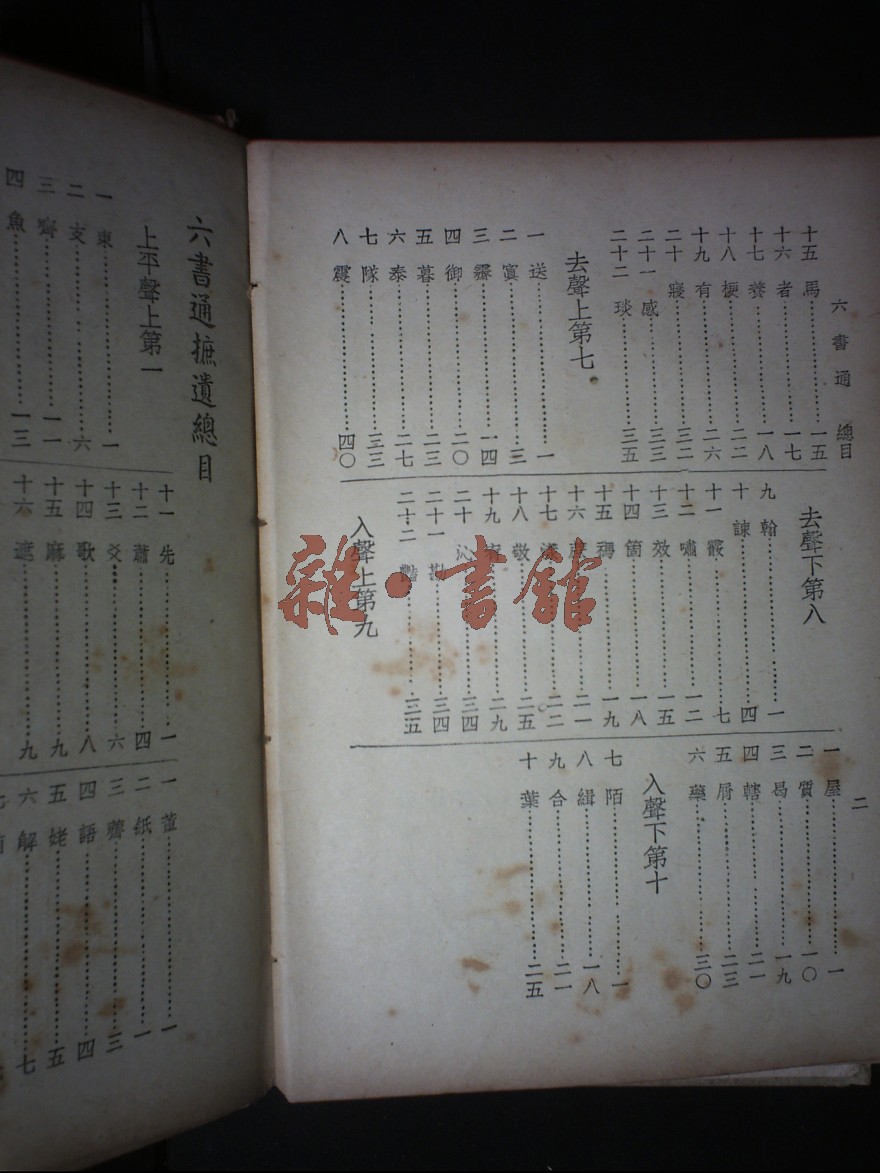 六書通 總目
二
十五 馬 一五
十六 者 一七
十七 養 一八
十八 梗 二二
十九 有 二六
二十 寢 三二
二十一 感 三三
二十二 琰 三五
去聲上第七
一 送 一
二 寘 三
三 霽 一四
四 御 二〇
五 暮 二三
六 泰 二七
七 隊 三三
八 震 四〇
去聲下第八
九 翰 一
十 諫 四
十一 霰 七
十二 嘯 一二
十三 效 一五
十四 箇 一八
十五 禡 一九
十六 二一
十七 漾 二二
十八 敬 二五
十九 宥 二九
二十 沁 三四
二十一 勘 三四
二十二 豔 三五
入聲上第九
一 屋 一
二 質 一〇
三 曷 一九
四 轄 二一
五 屑 二三
六 藥 三〇
入聲下第十
七 陌 一
八 緝 一八
九 合 二一
十 葉 二五
六書通摭遺總目
上平聲上第一
一 東 一
二 支 六
三 齊 一一
四 魚 一三
十一 先 一
十二 蕭 四
十三 爻 六
十四 歌 八
十五 麻 九
十六 遮 九
一 董 一
二 紙 一
三 薺 三
四 語 四
五 姥 五
六 解 七
雜·書館